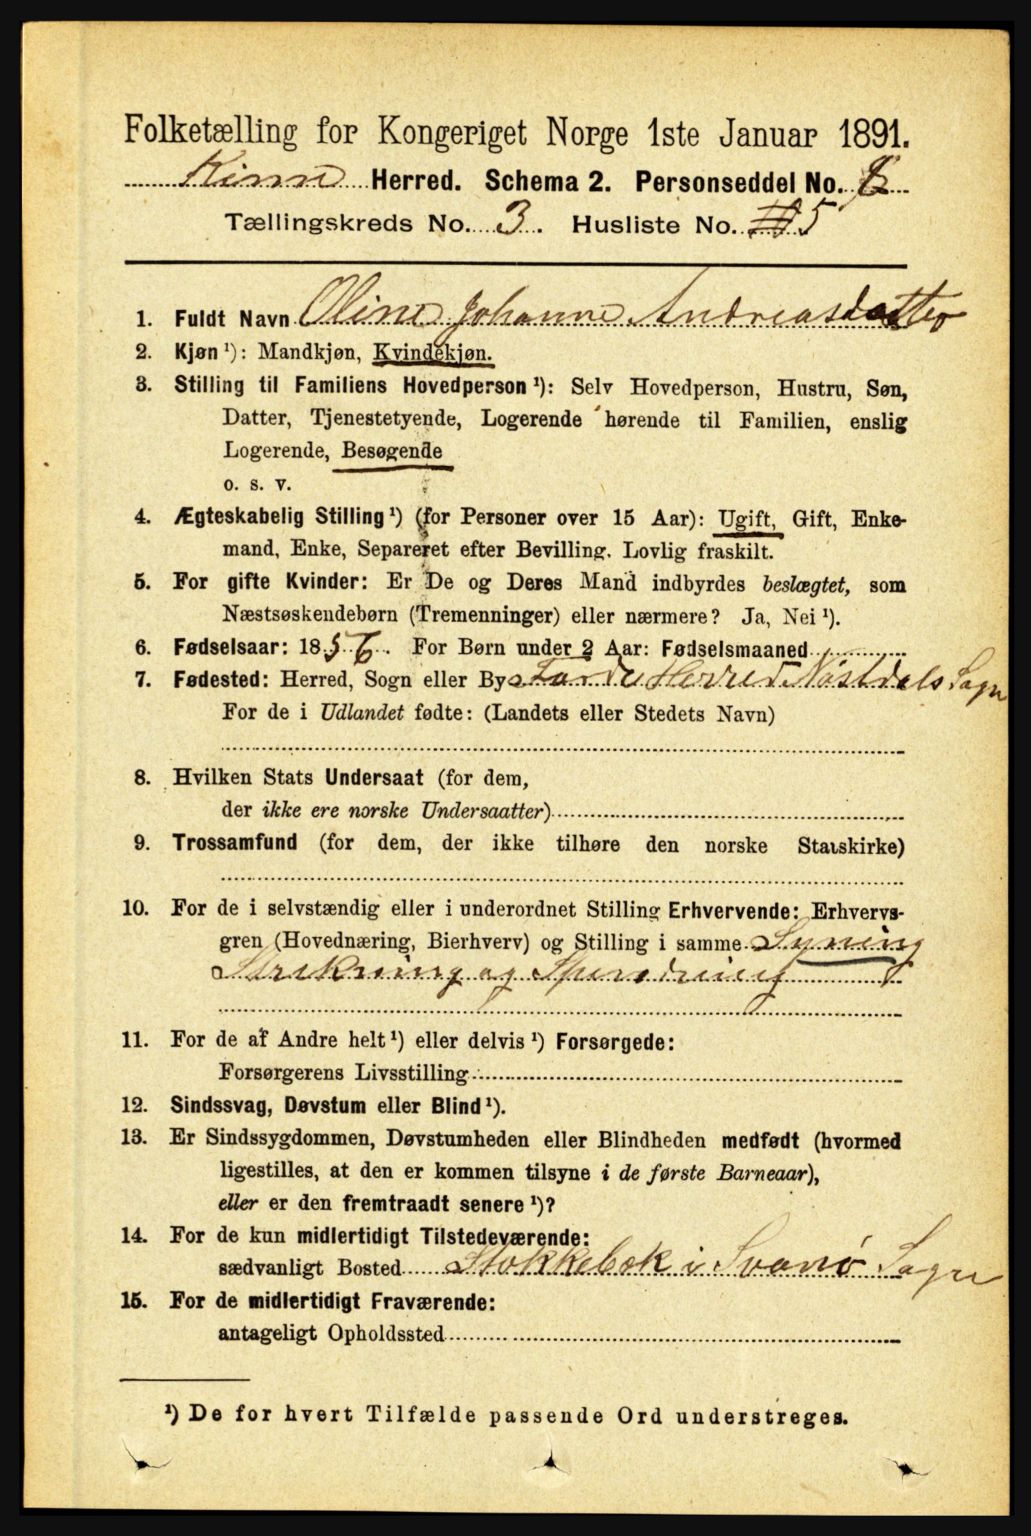 Folketælling for Kongeriget Norge 1ste Januar 1891.
Kinn Herred. Schema 2. Personseddel No.
Tællingskreds No. 3. Husliste No. 5
1. Fuldt Navn Oline Johanne Andreasdatter
2. Kjøn ¹): Mandkjøn, Kvindekjøn.
3. Stilling til Familiens Hovedperson ¹): Selv Hovedperson, Hustru, Søn,
Datter, Tjenestetyende, Logerende hørende til Familien, enslig
Logerende, Besøgende
o. s. v.
4. Ægteskabelig Stilling ¹) (for Personer over 15 Aar): Ugift, Gift, Enke-
mand, Enke, Separeret efter Bevilling. Lovlig fraskilt.
5. For gifte Kvinder: Er De og Deres Mand indbyrdes beslægtet, som
Næstsøskendebørn (Tremenninger) eller nærmere? Ja, Nei ¹).
6. Fødselsaar: 1856. For Børn under 2 Aar: Fødselsmaaned
7. Fødested: Herred, Sogn eller By Førde Herred Nøstdals Sogn
For de i Udlandet fødte: (Landets eller Stedets Navn)
8. Hvilken Stats Undersaat (for dem,
der ikke ere norske Undersaatter)
9. Trossamfund (for dem, der ikke tilhøre den norske Statskirke)
10. For de i selvstændig eller i underordnet Stilling Erhvervende: Erhvervs-
gren (Hovednæring, Bierhverv) og Stilling i samme Syning
Strikning og Spinding
11. For de af Andre helt ¹) eller delvis ¹) Forsørgede:
Forsørgerens Livsstilling
12. Sindssvag, Døvstum eller Blind ¹).
13. Er Sindssygdommen, Døvstumheden eller Blindheden medfødt (hvormed
ligestilles, at den er kommen tilsyne i de første Barneaar),
eller er den fremtraadt senere ¹)?
14. For de kun midlertidigt Tilstedeværende:
sædvanligt Bosted Stokkebek i Svanø Sogn
15. For de midlertidigt Fraværende:
antageligt Opholdssted
¹) De for hvert Tilfælde passende Ord understreges.